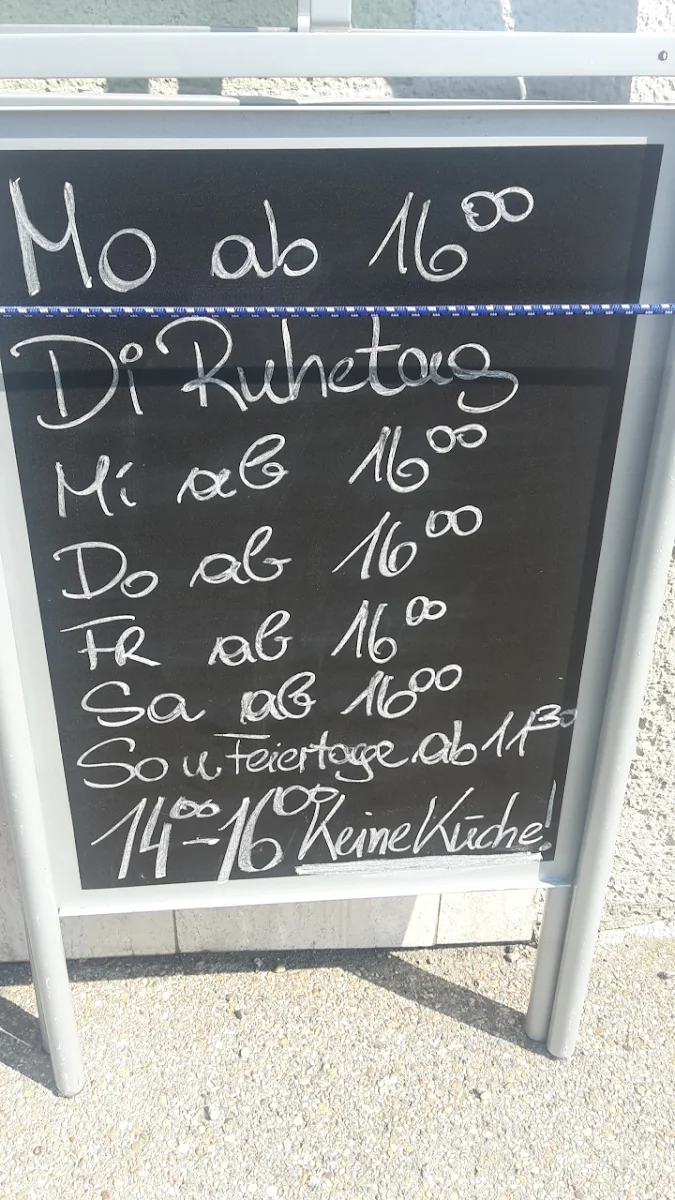 Mo ab 16⁰⁰
Di Ruhetag
Mi ab 16⁰⁰
Do ab 16⁰⁰
FR ab 16⁰⁰
Sa ab 16⁰⁰
So u Feiertage ab 11³⁰
14⁰⁰-16⁰⁰ Keine Küche!